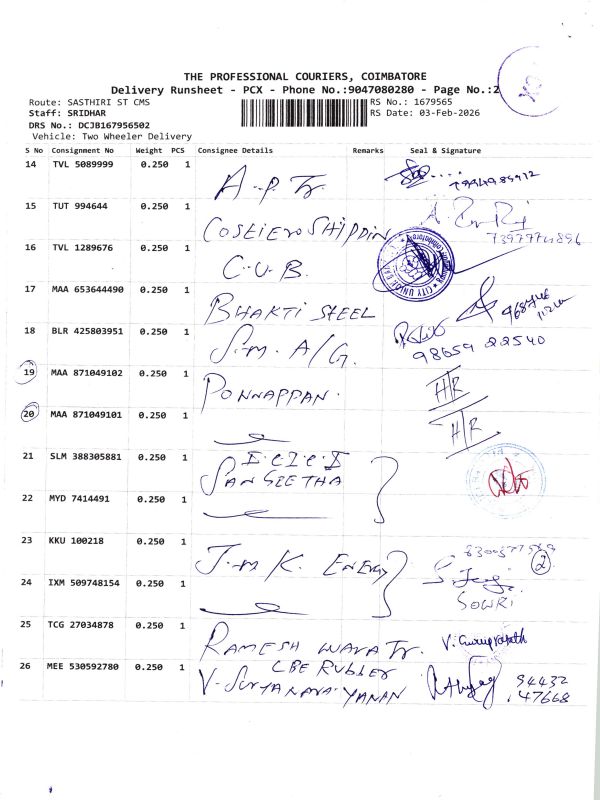 THE PROFESSIONAL COURIERS, COIMBATORE
Delivery Runsheet - PCX - Phone No.:9047080280 - Page No.:2
Route: SASTHIRI ST CMS RS No.: 1679565
Staff: SRIDHAR RS Date: 03-Feb-2026
DRS No.: DCJB167956502
Vehicle: Two Wheeler Delivery
S No Consignment No Weight PCS Consignee Details Remarks Seal & Signature
14 TVL 5089999 0.250 1 A.P. Tr
15 TUT 994644 0.250 1 COSTIERO SHIPPIN
16 TVL 1289676 0.250 1 C.U.B. CITY UNION
17 MAA 653644490 0.250 1 BHAKTI STEEL
18 BLR 425803951 0.250 1 S.M. A/G. 98659 22540
19 MAA 871049102 0.250 1 PONNAPPAN. H/R
20 MAA 871049101 0.250 1 H/R
21 SLM 388305881 0.250 1 I.C.I.C.I
SANGEETHA
22 MYD 7414491 0.250 1
23 KKU 100218 0.250 1 J.M K. ENERGY 2
24 IXM 509748154 0.250 1 SOWRI
25 TCG 27034878 0.250 1 RAMESH Tr.
26 MEE 530592780 0.250 1 CBE RUBBER
V. SURYANARAYANAN 94432
47668